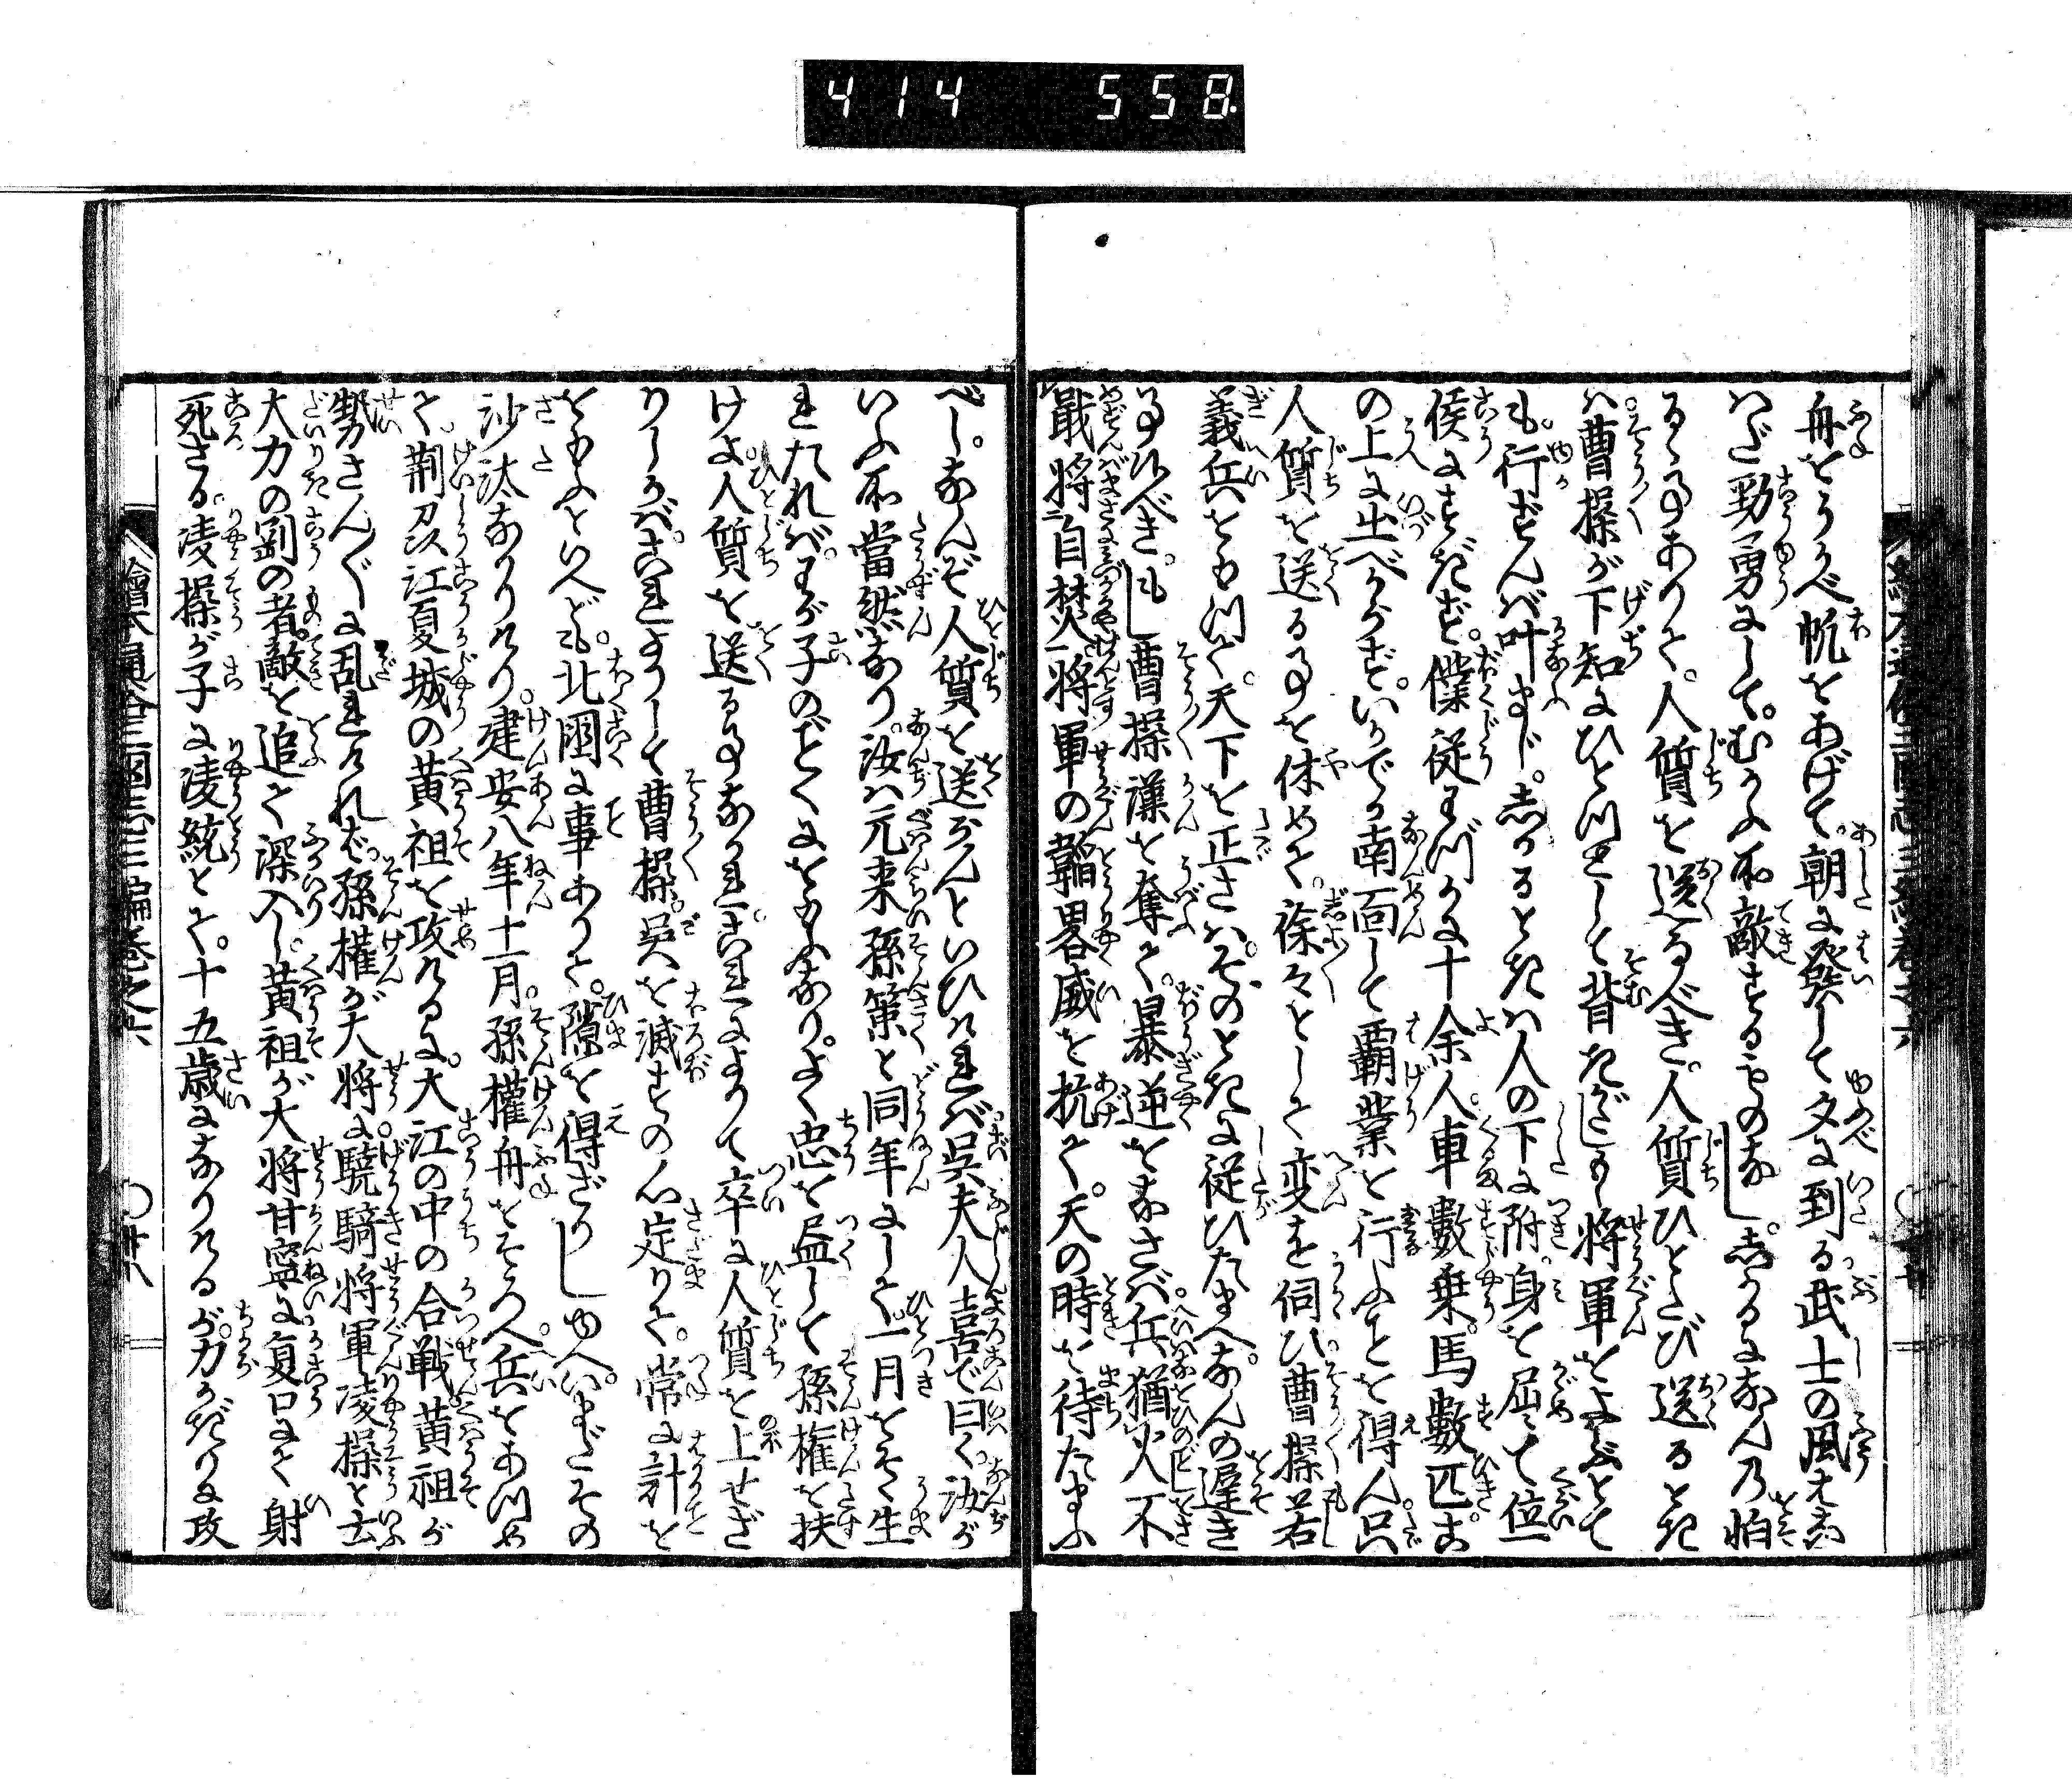 414 558
舟をうかべ帆をあげて。朝に発して夕に到る武士の風もつ
はだ勁勇にして。むかふ所敵するものなし。しかるになんの怕
るゝ事ありて。人質を送るべき。人質ひとたび送るとき
は。曹操が下知にひとつとして背きがたし。将軍をよぶとて
も。行ずんば叶まじ。しかるときは人の下に附。身を屈て位
侯にすぎず。僕従わづかに十余人。車數乗。馬數匹。
の上に出べからず。いかでか南面して覇業を行ふことを得ん。只
人質を送る事を休めて。徐々として変を伺ひ。曹操若
義兵をもつて。天下を正さば。そのときに従ひたまへ。なんの遅き
事候べき。もし曹操漢を奪て。暴逆をなさば。兵猶火不
戢将自焚。将軍の韜畧威を抗て。天の時を待たまふ
べし。なんぞ人質を送ぶんといひければ呉夫人喜で曰く。汝が
いふ所當然なり。汝は元来孫策と同年にして。一月をそく生
れたれば。わが子のごとくにをもふなり。よく忠を益して孫権を扶
けよ。人質を送る事なかれ。これによつて卒に人質を上せざ
りしかば。これよりして曹操。呉を滅すの心定りて。常に計を
をもふといへども。北國に事ありて。隙を得ざりしゆへ。いまだその
沙汰なかりけり。建安八年十一月。孫權舟をそろへ。兵をあつめ
て。荆州江夏城の黄祖を攻けるに。大江の中の合戦黄祖が
勢さんざんに乱れければ。孫權が大将に驍騎将軍凌操と云
大力の剛の者。敵を追て深入し。黄祖が大将甘寧に夏口にて射
死さる。凌操が子に凌統とて。十五歳になりけるが。力かぎりに攻
繪本通俗三國志三編巻之六
廿八